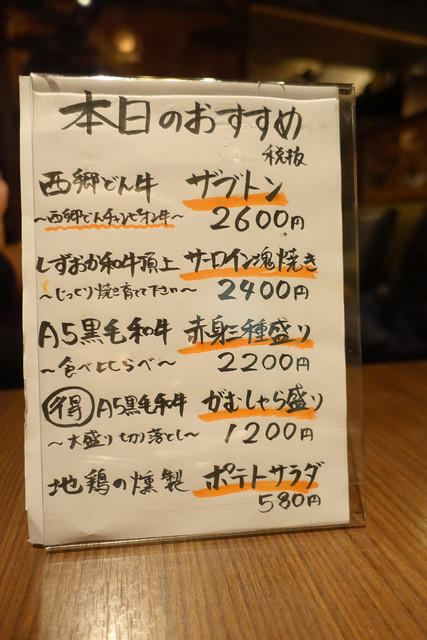 本日のおすすめ
税抜
西郷どん牛 ザブトン
～西郷どんチャンピオン牛～ 2600円
しずおか和牛頂上 サーロイン塊焼き
～じっくり焼き育て下さい～ 2400円
A5黒毛和牛 赤身三種盛り
～食べ比べ～ 2200円
得 A5黒毛和牛 がむしゃら盛り
～大盛り切り落とし～ 1200円
地鶏の燻製 ポテトサラダ
580円